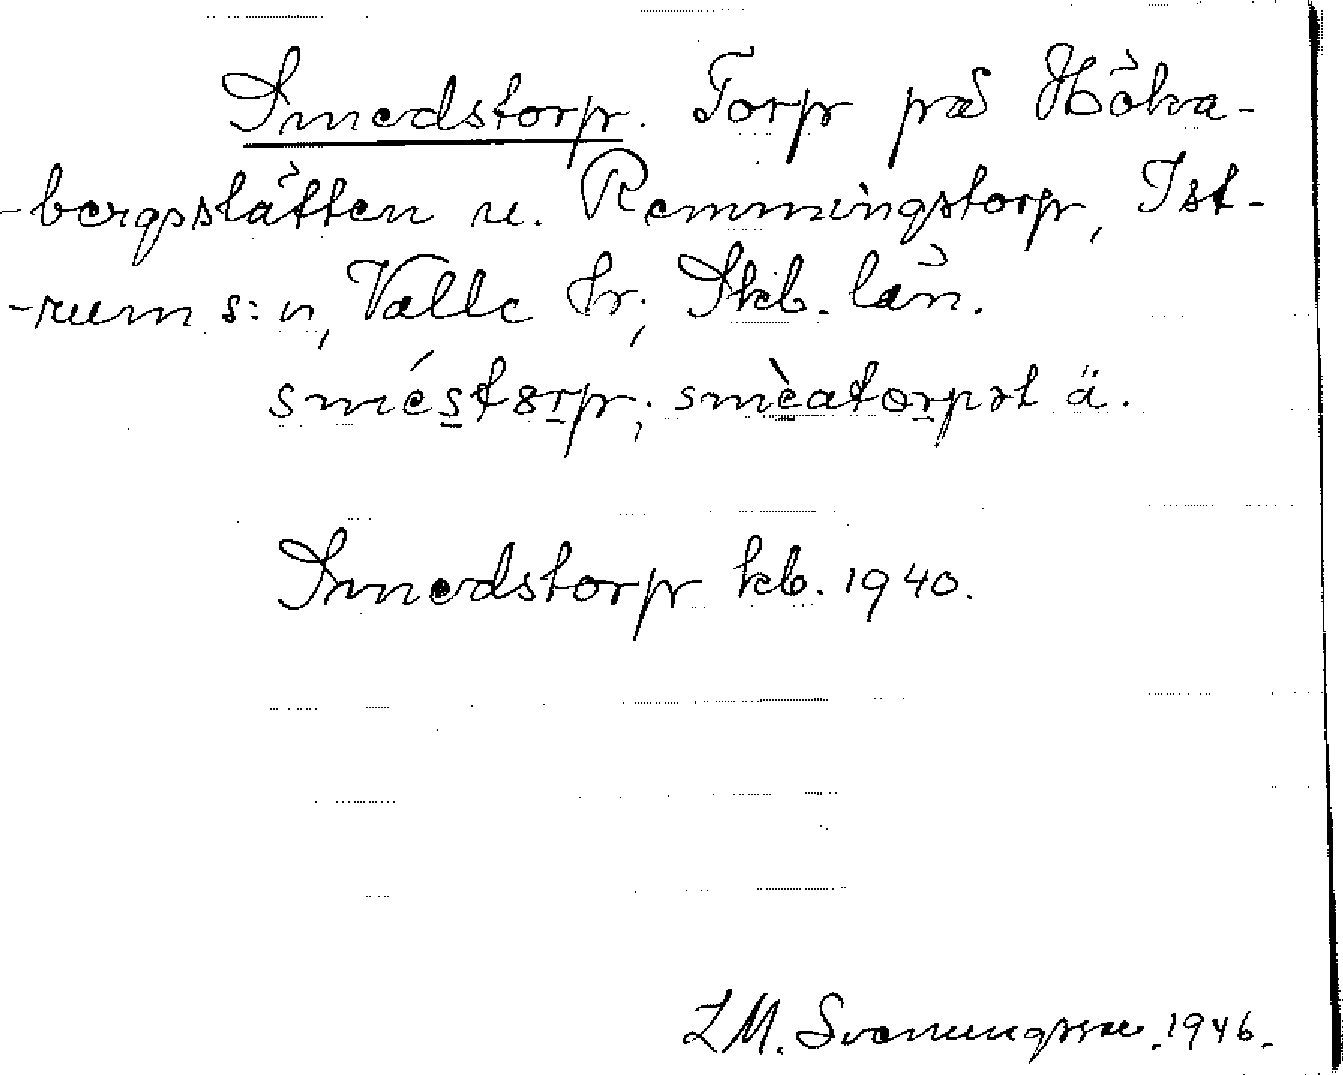 Smedstorp. Torp på Höka-
-bergsslätten u. Remmingstorp, Ist-
-rum s:n, Valle hr; Skb. län.
sméstɵrp; smèatɵrpət ä.
Smedstorp kb. 1940.
L M. Svenungsson. 1946.